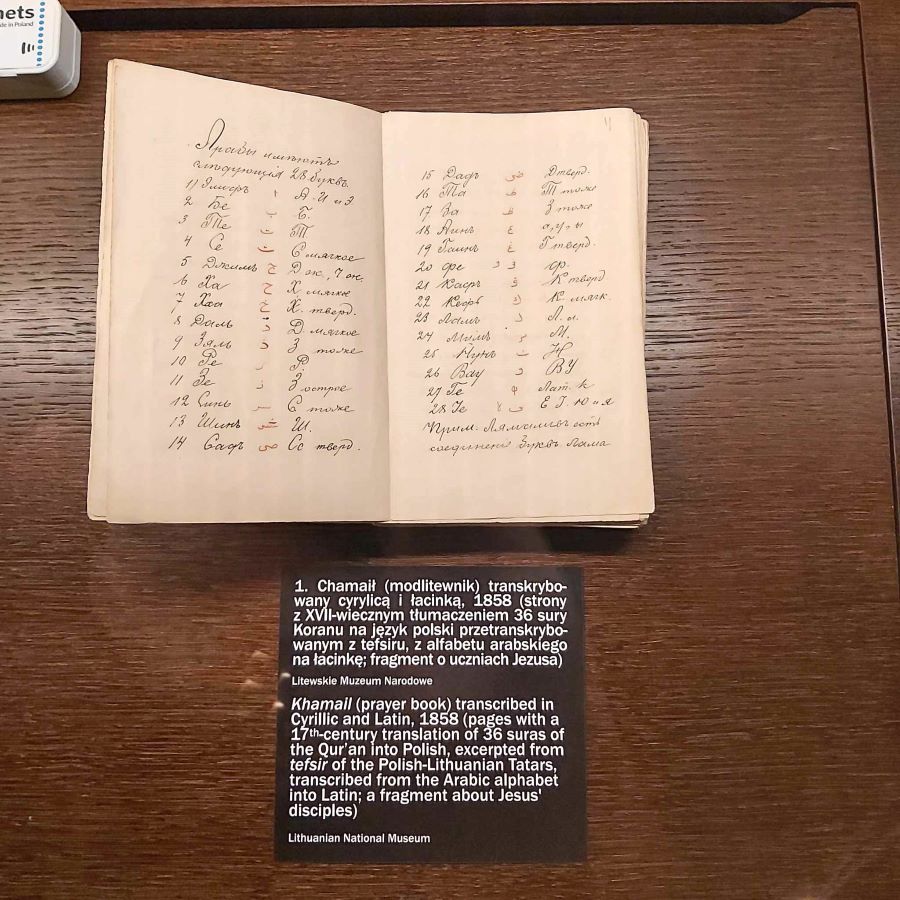 nets
de in Poland
Арабы имѣютъ
слѣдующія 28 буквъ.
1) Элифъ ا А. И и Э
2 Бе ب Б.
3 Те ت Т
4 Се ث С мягкое
5 Джимъ ج Дж, Ч ж.
6 Ха ح Х мягкое
7 Хаа خ Х. тверд.
8 Даль د Д мягкое
9 Зяль З тоже
10 Ре ر Р.
11 Зе ز З острое
12 Синь س С тоже
13 Шинъ ش Ш.
14 Садъ ص Сс тверд.
11
15 Дадъ ض Д тверд.
16 Та ط Т тоже
17 За ظ З тоже
18 Аинъ ع а, у, ы
19 Гаинъ غ Г тверд.
20 Фе ف ф.
21 Кафъ ق К тверд
22 Кефъ ك К мягк.
23 Ламъ Л. л.
24 Мимъ م М.
25 Нунъ ن Н
26 Вау و В У
27 Ге ه Лат. h
28 Іе لا ى Е І. Ю и Я
Прим: Лямалифъ есть
соединеніе буквъ Лама
1. Chamaił (modlitewnik) transkrybo-
wany cyrylicą i łacinką, 1858 (strony
z XVII-wiecznym tłumaczeniem 36 sury
Koranu na język polski przetranskrybo-
wanym z tefsiru, z alfabetu arabskiego
na łacinkę; fragment o uczniach Jezusa)
Litewskie Muzeum Narodowe
Khamail (prayer book) transcribed in
Cyrillic and Latin, 1858 (pages with a
17th-century translation of 36 suras of
the Qur'an into Polish, excerpted from
tefsir of the Polish-Lithuanian Tatars,
transcribed from the Arabic alphabet
into Latin; a fragment about Jesus'
disciples)
Lithuanian National Museum